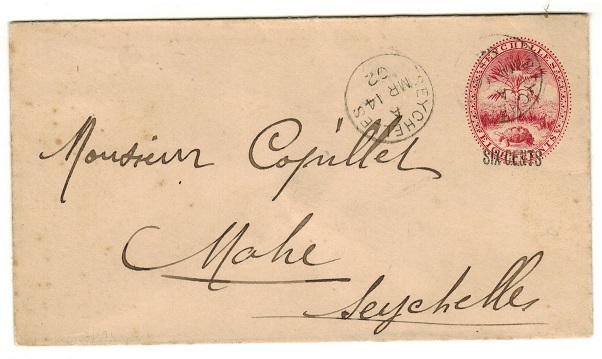 SEYCHELLES
SIX CENTS
SEYCHELLES
A
MR 14
02
Monsieur Copillet
Mahe
Seychelles